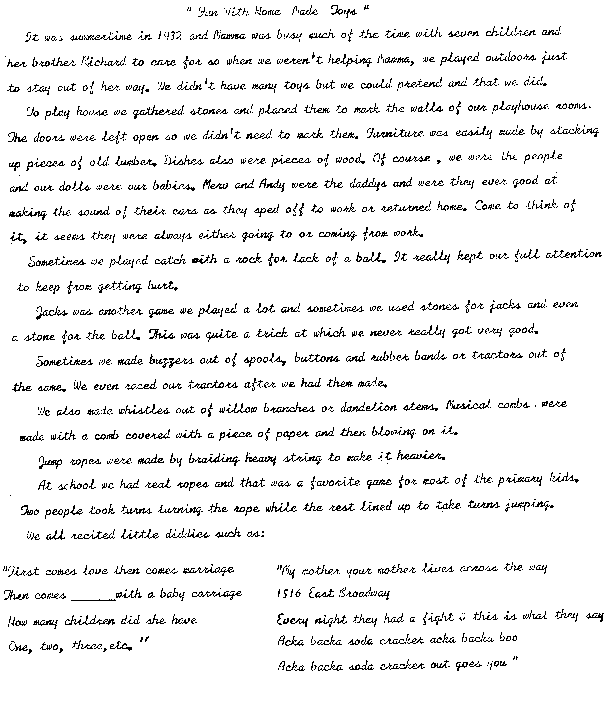 "Fun With Home Made Toys"
It was summertime in 1932 and Mamma was busy much of the time with seven children and
her brother Richard to care for so when we weren't helping Mamma, we played outdoors just
to stay out of her way. We didn't have many toys but we could pretend and that we did.
To play house we gathered stones and placed them to mark the walls of our playhouse rooms.
The doors were left open so we didn't need to mark them. Furniture was easily made by stacking
up pieces of old lumber. Dishes also were pieces of wood. Of course, we were the people
and our dolls were our babies. Merv and Andy were the daddys and were they ever good at
making the sound of their cars as they sped off to work or returned home. Come to think of
it, it seems they were always either going to or coming from work.
Sometimes we played catch with a rock for lack of a ball. It really kept our full attention
to keep from getting hurt.
Jacks was another game we played a lot and sometimes we used stones for jacks and even
a stone for the ball. This was quite a trick at which we never really got very good.
Sometimes we made buzzers out of spools, buttons and rubber bands or tractors out of
the same. We even raced our tractors after we had them made.
We also made whistles out of willow branches or dandelion stems. Musical combs were
made with a comb covered with a piece of paper and then blowing on it.
Jump ropes were made by braiding heavy string to make it heavier.
At school we had real ropes and that was a favorite game for most of the primary kids.
Two people took turns turning the rope while the rest lined up to take turns jumping.
We all recited little diddies such as:
"First comes love then comes marriage
Then comes ______with a baby carriage
How many children did she have
One, two, three, etc. "
"My mother your mother lives across the way
1516 East Broadway
Every night they had a fight & this is what they say
Acka backa soda cracker acka backa boo
Acka backa soda cracker out goes you"